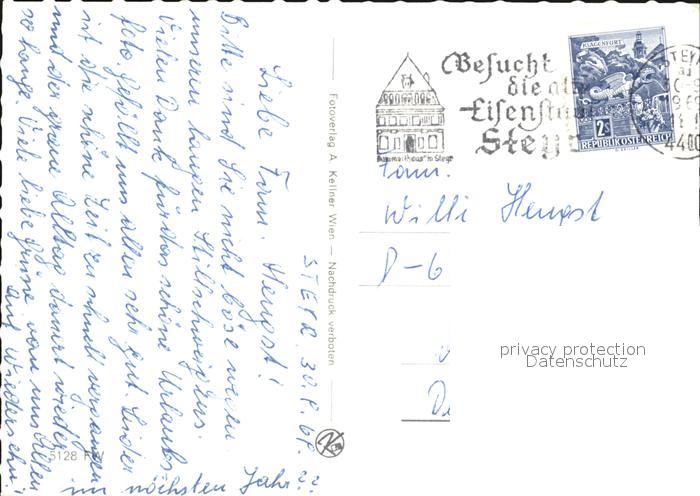 STEYR, 30.8.68.
Liebe Fam. Hengst!
Bitte sind Sie nicht böse wegen
unseren langen Stillschweigens.
Vielen Dank für das schöne Urlaubs
foto. gefällt uns allen sehr gut. Leider
ist die schöne Zeit zu schnell vergangen
und der graue Alltag dauert wieder
so lange. Viele liebe Grüsse von uns Allen
auf Wiedersehn!
im nächsten Jahr??
5128 FW
Fotoverlag A. Kellner Wien — Nachdruck verboten
Besucht
die alte
Eisenstadt
Steyr
"Bummerlhaus" in Steyr
KLAGENFURT
2S
REPUBLIK ÖSTERREICH
STEYR
4400
Fam.
Willi Hengst
D-6
privacy protection
Datenschutz